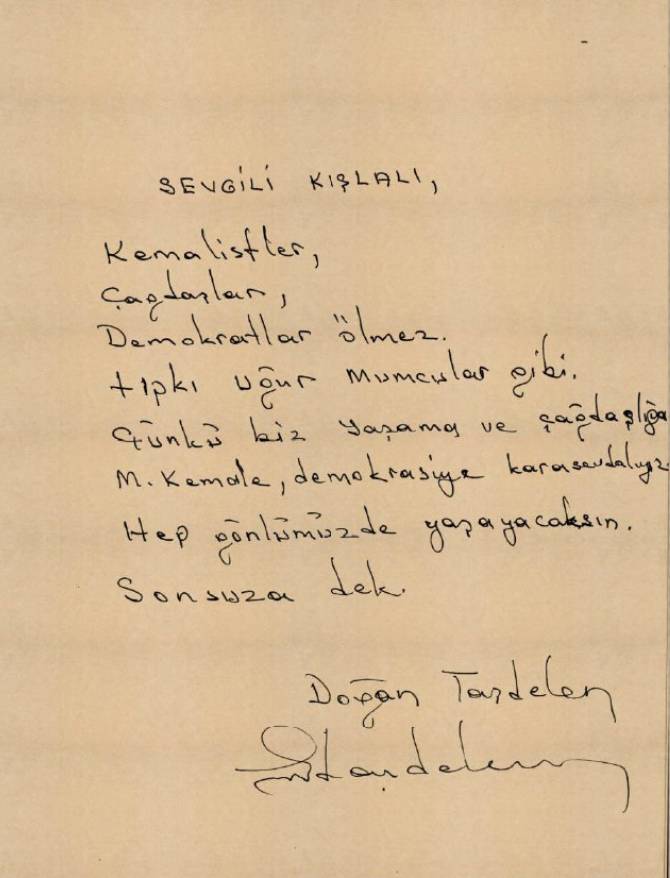 SEVGİLİ KIŞLALI,
Kemalistler,
Çağdaşlar,
Demokratlar ölmez.
Tıpkı Uğur Mumcular gibi.
Çünkü biz yaşama ve çağdaşlığa
M. Kemale, demokrasiye karasevdalıyız
Hep gönlümüzde yaşayacaksın.
Sonsuza dek.
Doğan Taşdelen